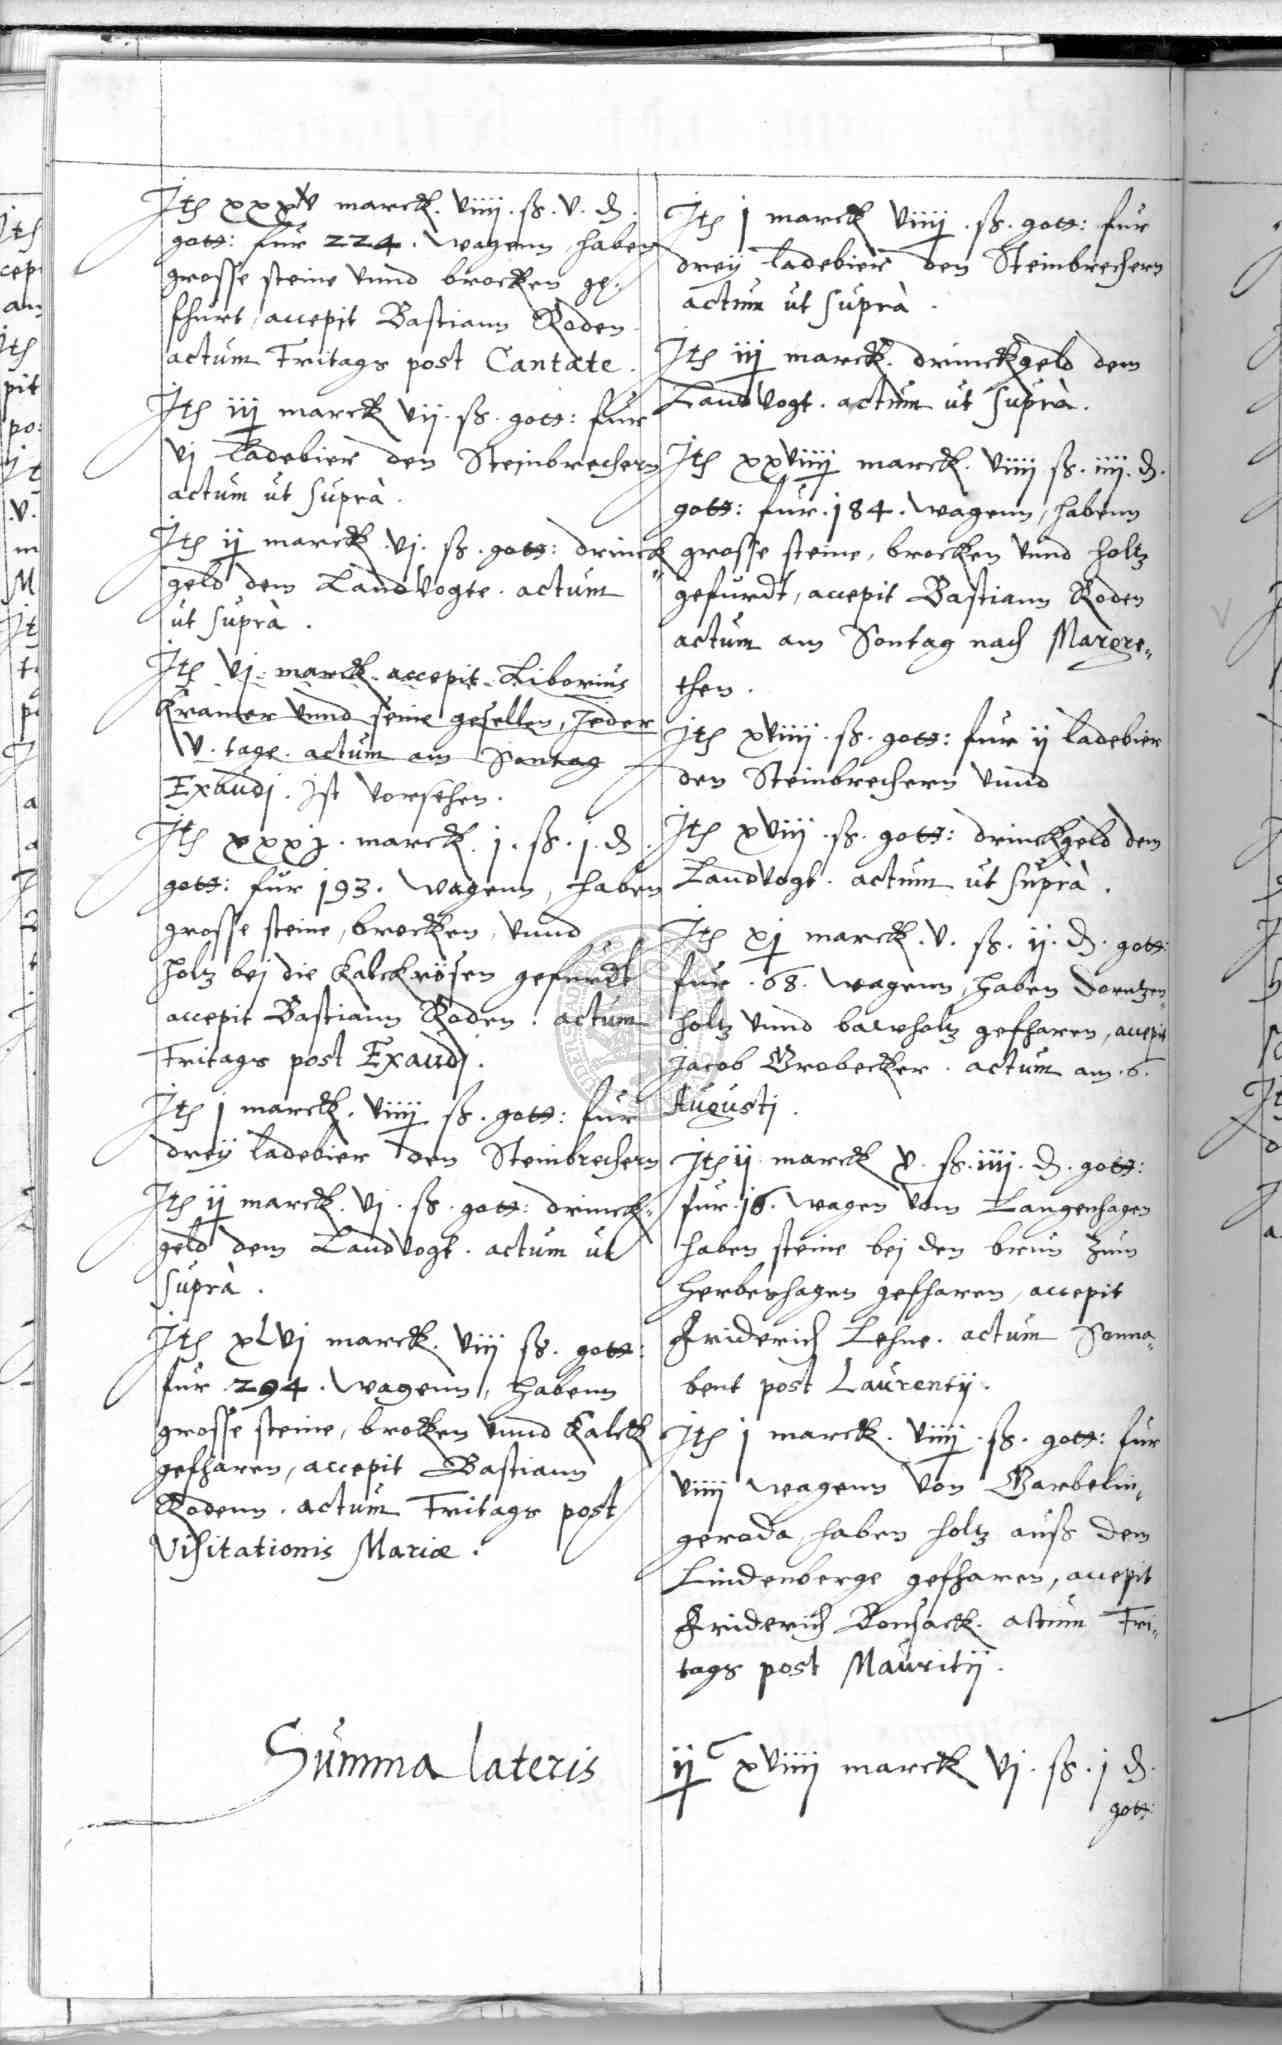 Jtem xxxv marck. viiij. ß. v. d.
gott: fur 224. wagenn, haben
grosse steine vnnd brocken ge-
fhurt, accepit Bastiann Roden.
actum Fritags post Cantate.
Jtem iij marck vij. ß. gott: fur
vj ladebier den Steinbrechern
actum ut suprà.
Jtem ij marck. vj. ß. gott: drinck-
geld dem Landvogte. actum
ut suprà.
Jtem vj. marck. accepit Liborius
Kramer vnnd seine gesellen, Jeder
v. tage. actum am Sontag
Exaudj. Jst vorsehen.
Jtem xxxj. marck. j. ß. j. d.
gott: fur 193. wagenn, haben
grosse steine, brocken, vnnd
holtz bej die Kalckrösen gefurdt
accepit Bastiann Roden. actum
Fritags post Exaudj.
Jtem j marck. viiij ß. gott: fur
dreij ladebier den Steinbrechern
Jtem ij marck. vj. ß. gott: drinck-
geld dem Landvogt. actum ut
suprà.
Jtem xLvj marck. viij ß. gott:
fur 294. wagenn, habenn
grosse steine, brocken vnnd Kalck
gefharen, accepit Bastiann
Rodenn. actum Fritags post
Visitationis Mariæ.
Jtem j marck viiij. ß. gott: fur
dreij ladebier den Steinbrechern
actum ut suprà.
Jtem iij marck. drinckgeld dem
Landvogt. actum ut suprà.
Jtem xxviiij marck. viiij ß. iiij. d.
gott: fur. 184. wagenn, habenn
grosse steine, brocken vnnd holtz
gefurdt, accepit Bastiann Roden
actum am Sontag nach Margre-
then.
Jtem xviiij. ß. gott: fur ij ladebier
den Steinbrechern vnnd
Jtem xviij. ß. gott: drinckgeld dem
Landvogt. actum ut suprà.
Jtem xj marck. v. ß. ij. d. gott:
fur. 68. wagenn, haben dorntzen-
holtz vnnd bawholtz gefharen, accepit
Jacob Grobecker. actum am. 6.
Augustj.
Jtem ij marck v. ß. iiij. d. gott:
fur. 16. wagen vom Langenhagen
haben steine bej den brun zum
Herbershagen gefharen, accepit
Friderich Lehne. actum Sonna-
bent post Laurentij.
Jtem j marck. viiij. ß. gott: fur
viiij wagenn von Garbelin-
geroda, haben holtz auß dem
Lindenberge gefharen, accepit
Friderich Bonsack. actum Fri-
tags post Mauritij.
Summa lateris ijC xviiij marck vj. ß. j d.
gott: